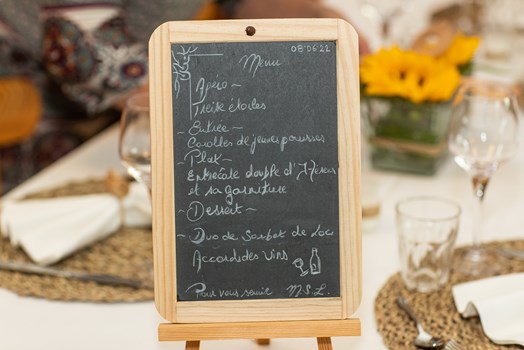 08.06.22
Menu
Apéro ~
Treize étoiles
~ Entrée ~
Corolles de jeunes pousses
~ Plat ~
Entrecôte double d'Hérens
et sa garniture
~ Dessert ~
~ Duo de Sorbet de Loc
Accord des vins
Pour vous servir M.S.L.